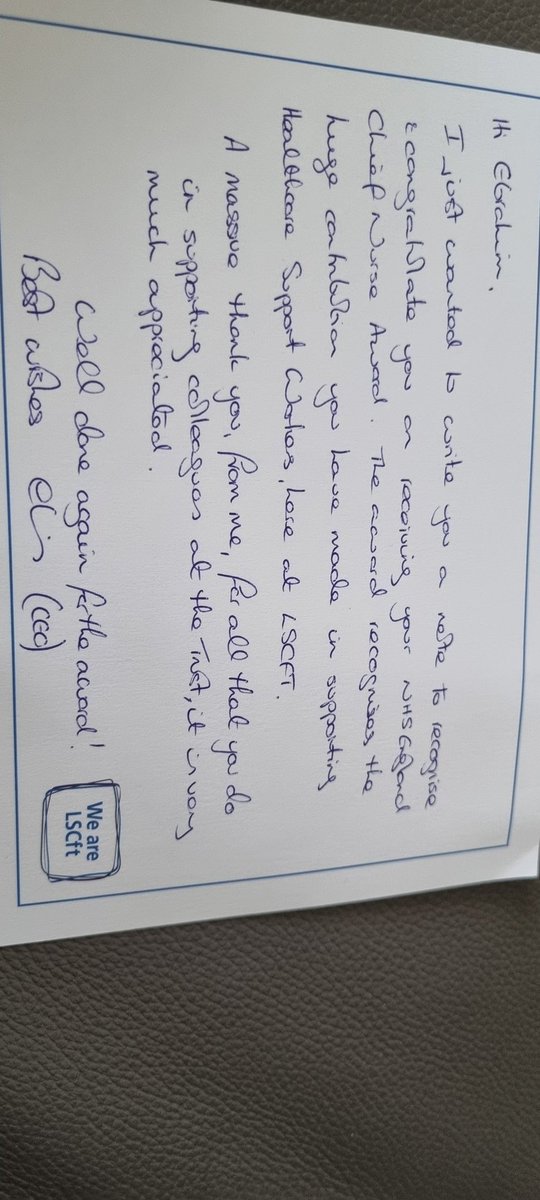 Hi Ebrahim,
I just wanted to write you a note to recognise
& congratulate you on receiving your NHS England
Chief Nurse Award. The award recognises the
huge contribution you have made in supporting
Healthcare Support Workers, here at LSCFT.
A massive thank you, from me, for all that you do
in supporting colleagues at the Trust, it is very
much appreciated.
Well done again for the award!
Best wishes Chris (CEO)
We are
LSCft